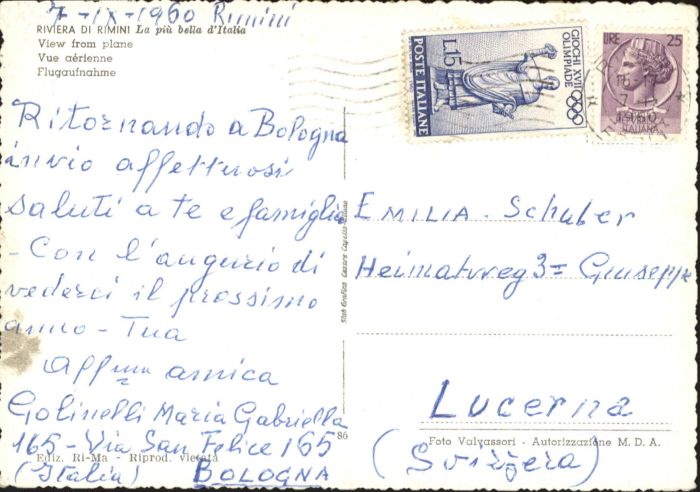 7-IX-1960 Rimini
RIVIERA DI RIMINI La più bella d'Italia
View from plane
Vue aérienne
Flugaufnahme
Ritornando a Bologna
invio affettuosi
saluti a te e famiglia
- Con l'augurio di
vederci il prossimo
anno - Tua
Aff.ma amica
Golinelli Maria Gabriella
165 - Via San Felice 165
(Italia) BOLOGNA
Ediz. Ri-Ma - Riprod. vietata
86
Stab Grafico Cesare Capello - Milano
GIOCHI XVII OLIMPIADE
L.15
POSTE ITALIANE
LIRE 25
REPUBBLICA
ITALIANA
1960
EMILIA - Schuber
Heimatweg 3 = Giuseppe
Lucerna
Foto Valvassori - Autorizzazione M. D. A.
(Svizzera)